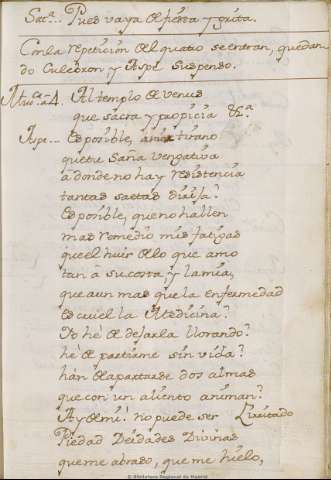 Sat.ª.. Pues vaya de fiesta y grita.
Con la repeticion del quatro se entran, quedan-
do Culebron, y Aspe suspenso.
Mus.ca â 4. Al templo de Venus
que sacra y propicia &c.ª
Aspe... Es posible, tirano
que tu saña vengativa
a donde no hay resistencia
tantas saetas
Es posible, que no hallen
mas remedio mis fatigas
que el huir de lo que amo
tan a su costa, y la mia,
que aun mas que la enfermedad
es cruel la Medicina?
Yo hé de dejarla llorando?
hé de partirme sin vida?
hán de apartarse dos almas
que con un aliento animan?
Ay de mi! no puede ser Limitado
Piedad Deidades Divinas
que me abraso, que me hielo,
© Biblioteca Regional de Madrid